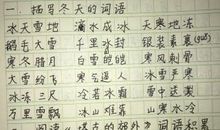 一 描写冬天的词语
冰天雪地 滴水成冰 天寒地冻
鹅毛大雪 千里冰封 银装素裹(guǒ)
寒冬腊月 白雪皑皑 寒风刺骨
大雪纷飞 寒气逼人
冰冻三尺 冷若冰霜
万里雪飘 冰山难靠 山寒水冷
词语积累